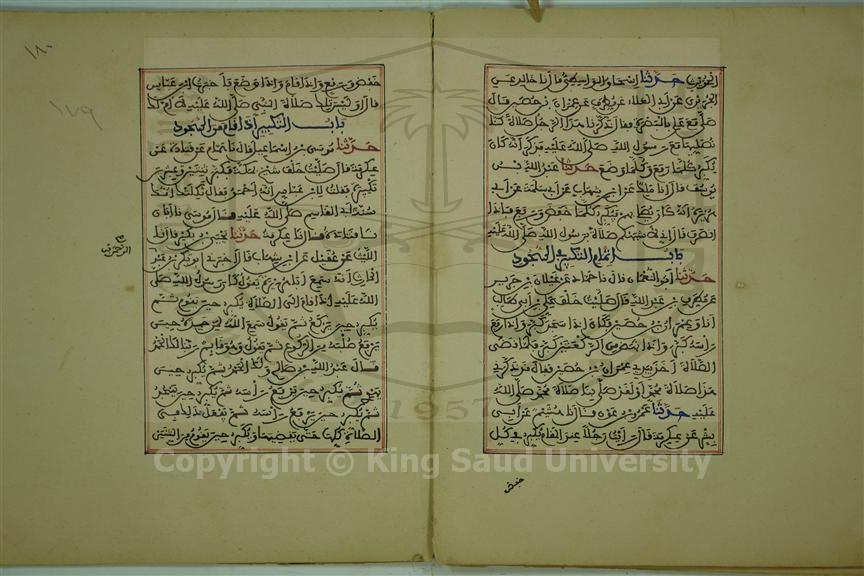 الجريري حدثنا إسحاق الواسطي قال نا خالد عن
الجريري عن أبي العلاء عن مطرف عن عمران بن حصين قال
صلى مع علي بالبصرة فقال ذكرنا هذا الرجل صلاة كنا
نصليها مع رسول الله صلى الله عليه فذكر أنه كان
يكبر كلما رفع وكلما وضع حدثنا عبد الله بن
يوسف قال أنا مالك عن ابن شهاب عن أبي سلمة عن أبي
هريرة أنه كان يصلي بهم فيكبر كلما خفض ورفع فإذا
انصرف قال إني لأشبهكم صلاة برسول الله صلى الله عليه
باب إتمام التكبير في السجود
حدثنا أبو النعمان قال نا حماد عن غيلان بن جرير
عن مطرف بن عبد الله قال صليت خلف علي بن أبي طالب
أنا وعمران بن حصين فكان إذا سجد كبر وإذا رفع
رأسه كبر وإذا نهض من الركعتين كبر فلما قضى
الصلاة أخذ بيدي عمران بن حصين فقال قد ذكرني
هذا صلاة محمد أو لقد صلى بنا صلاة محمد صلى الله
عليه حدثنا عمرو بن عون قال نا هشيم عن أبي
بشر عن عكرمة قال رأيت رجلا عند المقام يكبر في كل
خفض
خفض ورفع وإذا قام وإذا وضع فأخبرت ابن عباس
قال أوليس تلك صلاة النبي صلى الله عليه لا أم لك
باب التكبير إذا قام من السجود
حدثنا موسى بن إسماعيل قال نا همام عن قتادة عن
عكرمة قال صليت خلف شيخ بمكة فكبر ثنتين وعشرين
تكبيرة فقلت لابن عباس إنه أحمق فقال ثكلتك أمك
سنة أبي القاسم صلى الله عليه قال موسى نا أبان
نا قتادة قال نا عكرمة حدثنا يحيى بن بكير قال نا
الليث عن عقيل عن ابن شهاب قال أخبرني أبو بكر بن عبد
الرحمن بن
الحارث أنه سمع أبا هريرة يقول كان رسول الله صلى
الله عليه إذا قام إلى الصلاة يكبر حين يقوم ثم
يكبر حين يركع ثم يقول سمع الله لمن حمده حين
يرفع صلبه من الركوع ثم يقول وهو قائم ربنا لك الحمد
قال عبد الله بن صالح ولك الحمد ثم يكبر حين
يهوي ثم يكبر حين يرفع رأسه ثم يكبر حين يسجد
ثم يكبر حين يرفع رأسه ثم يفعل ذلك في
الصلاة كلها حتى يقضيها ويكبر حين يقوم من الثنتين
١٨٠
١٧٩
1957
Copyright © King Saud University